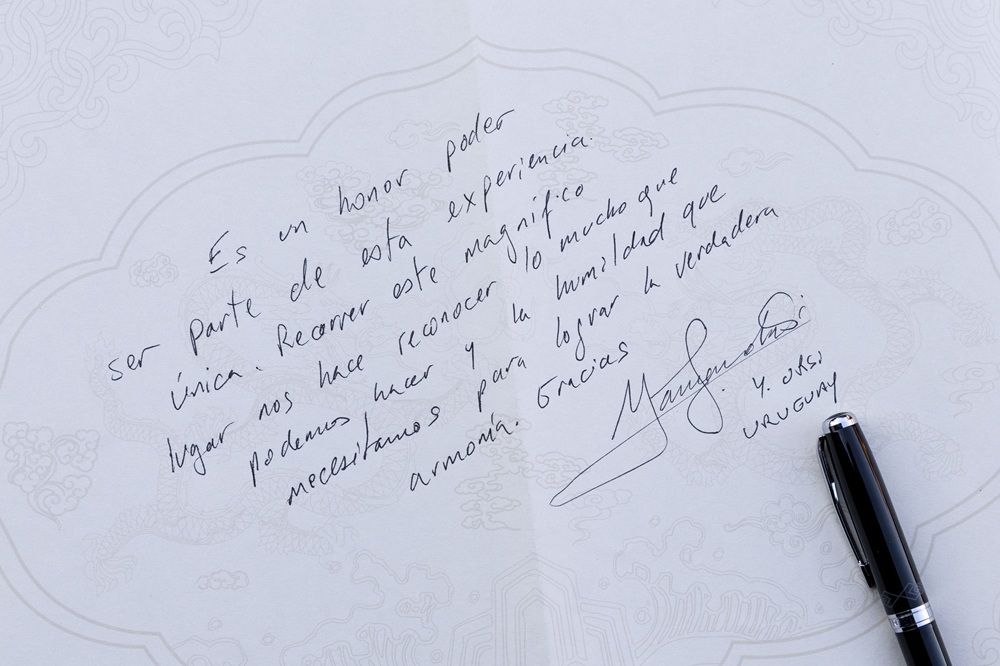 Es un honor poder
ser parte de esta experiencia.
única. Recorrer este magnífico
lugar nos hace reconocer lo mucho que
podemos hacer y la humildad que
necesitamos para lograr la verdadera
armonía. Gracias
Y. ORSI
URUGUAY